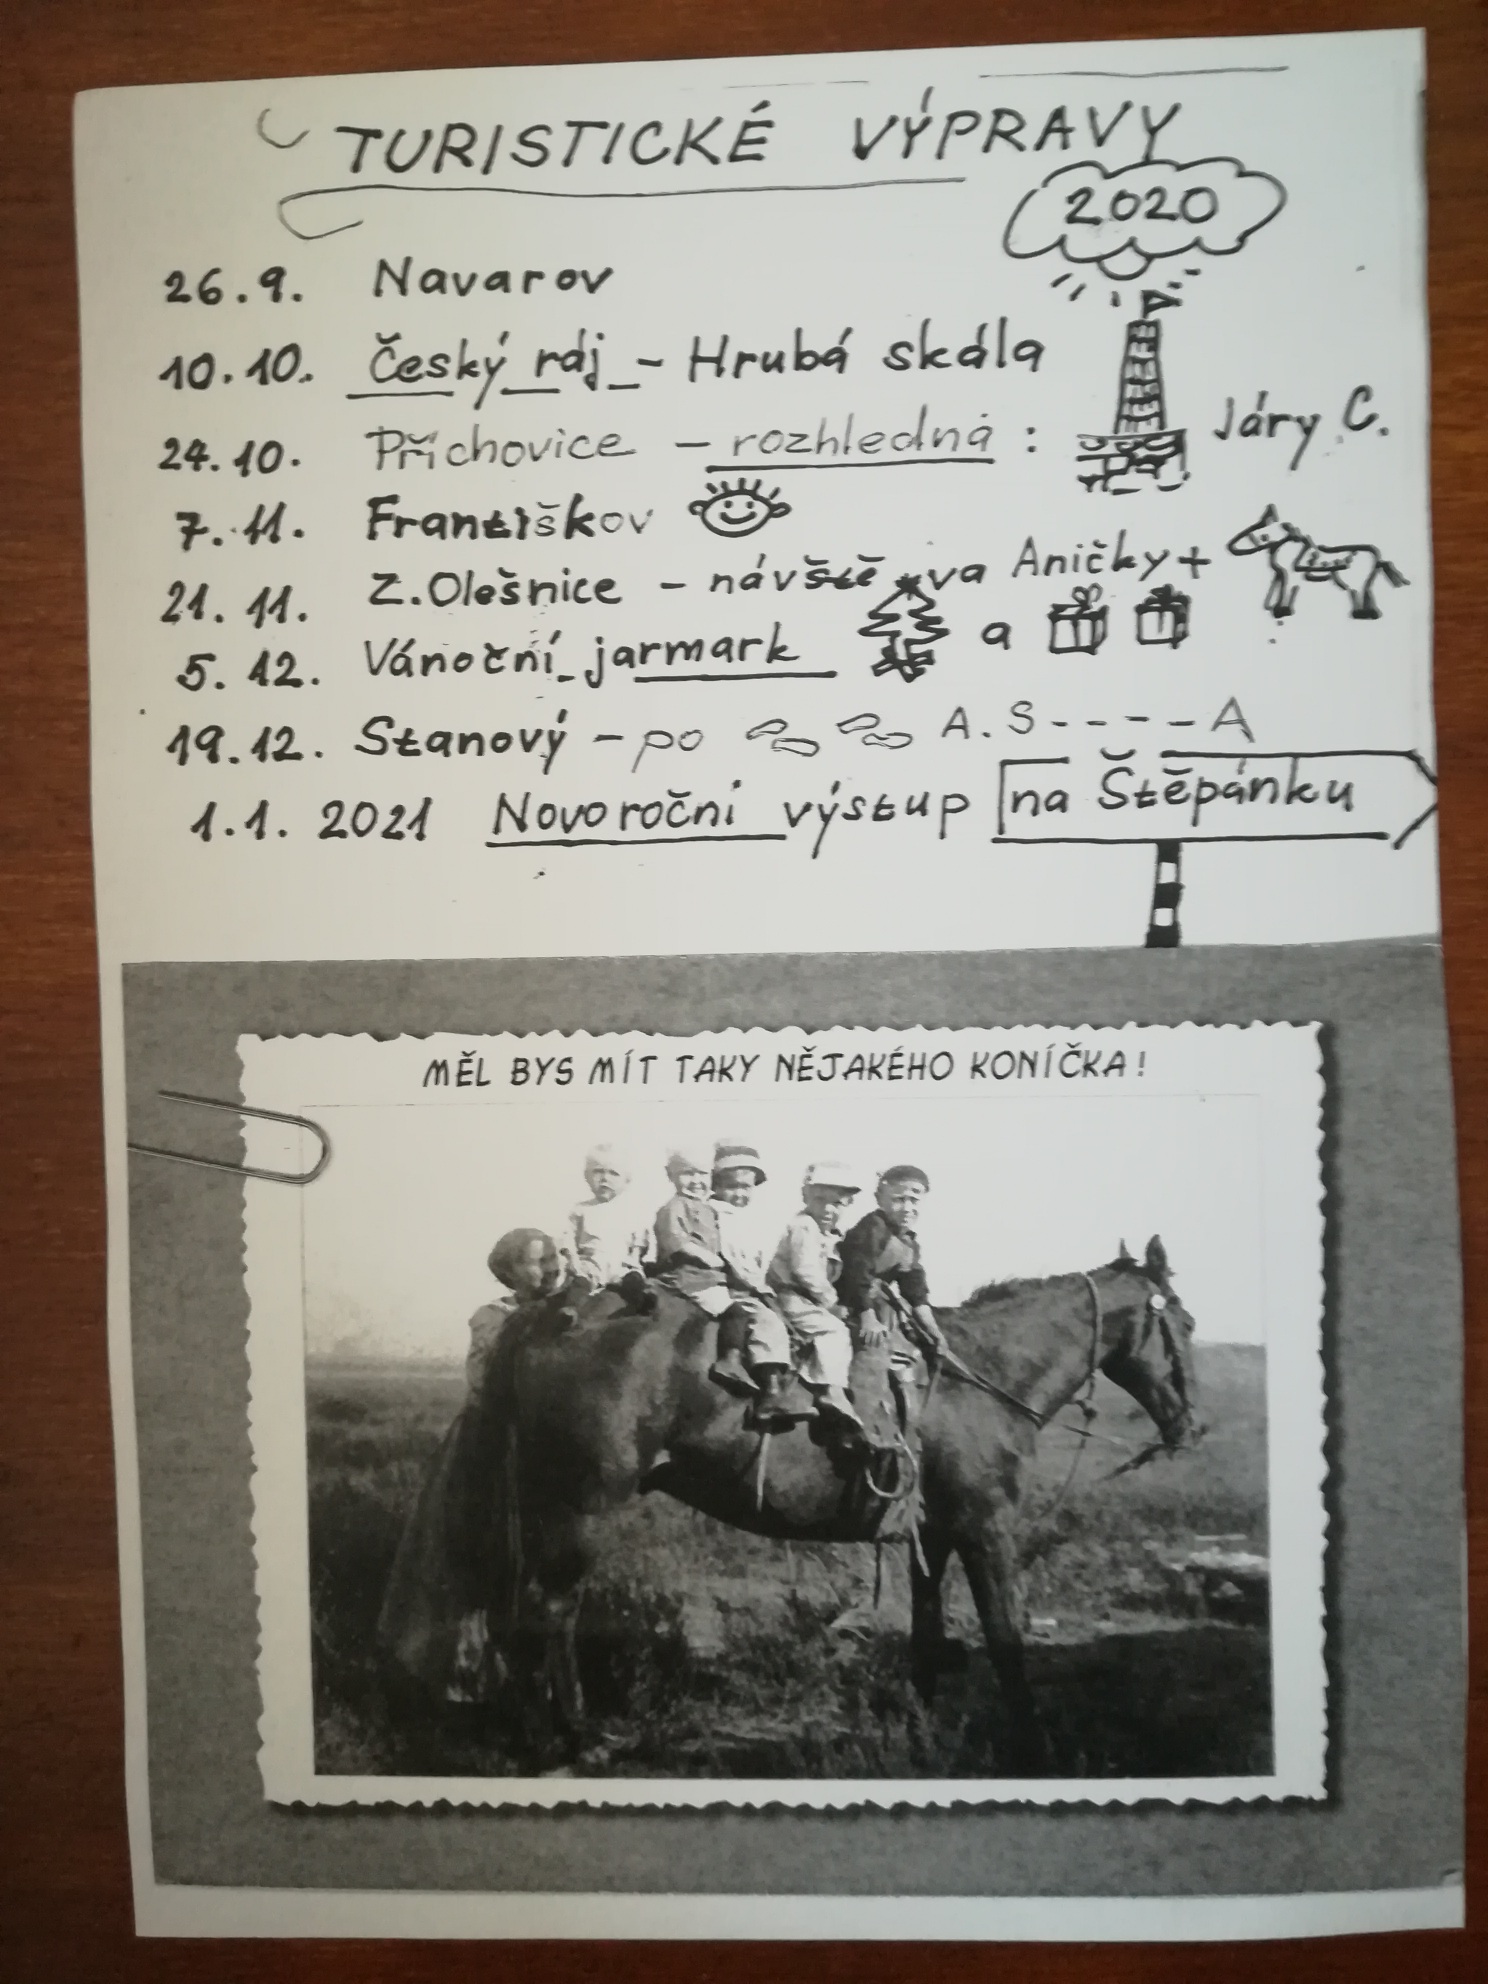 TURISTICKÉ VÝPRAVY
2020
26.9. Navarov
10.10. Český ráj - Hrubá skála
24.10. Příchovice - rozhledna : Járy C.
7.11. Františkov
21.11. Z.Olešnice - návštěva Aničky +
5.12. Vánoční jarmark a
19.12. Stanový - po A.S----A
1.1. 2021 Novoroční výstup na Štěpánku
MĚL BYS MÍT TAKY NĚJAKÉHO KONÍČKA!